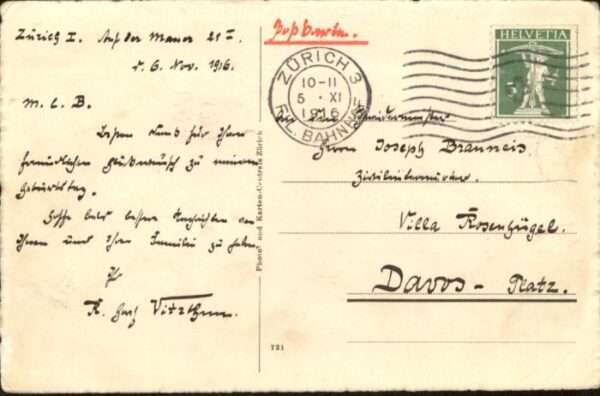 Zürich I. Auf der Mauer 21 I.
d. 6. Nov. 1916.
M. L. B.
Besten Dank für Ihren
freundlichen Glückwunsch zu meinem
Geburtstag.
Hoffe bald bessere Nachrichten von
Ihnen und Ihrer Familie zu haben.
Ihr
K. Graf Vitzthum.
Photo- und Karten-Centrale Zürich
721
Postkarte.
ZÜRICH 3
10-11
5. XI
1916
FIL. BAHNHOF
HELVETIA
5
Herrn Joseph Brauneis
Villa Rosenhügel.
Davos - Platz.